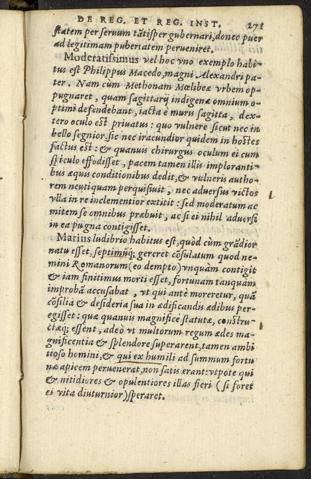 DE REG. ET REG. INST. 271
statem per seruum tātisper gubernari, donec puer
ad legitimam pubertatem perueniret.
Moderatissimus vel hoc vno exemplo habi-
tus est Philippus Macedo, magni Alexandri pa-
ter. Nam cùm Methonam Mœlibeæ vrbem op-
pugnaret, quam sagittarij indigenæ omnium o-
ptimi defendebant, iacta è muris sagitta, dex-
tero oculo est priuatus: quo vulnere sicut nec in
bello segnior, sic nec iracundior quidem in hostes
factus est: & quanuis chirurgus oculum ei cum
spiculo effodisset, pacem tamen illis imploranti-
bus æquis conditionibus dedit, & vulneris autho-
rem neutiquam perquisiuit, nec aduersus victos
vlla in re inclementior extitit: sed moderatum ac
mitem se omnibus præbuit, ac si ei nihil aduersi
in ea pugna contigisset.
Marius ludibrio habitus est, quòd cùm grādior
natu esset, septimūq; gereret cōsulatum quod ne-
mini Romanorum (eo dempto) vnquàm contigit
& iam finitimus morti esset, fortunam tanquam
improbā accusabat, vt qui antè moreretur, quā
cōsilia & desideria sua in ædificandis ædibus per-
egisset: quæ quanuis magnificè statutæ, constru-
ctæq; essent, adeò vt multorum regum ædes ma-
gnificentia & splendore superarent, tamen ambi
tioso homini, & qui ex humili ad summum fortu
næ apicem peruenerat, non satis erant: vtpote qui
& nitidiores & opulentiores illas fieri (si foret
ei vita diuturnior) speraret.